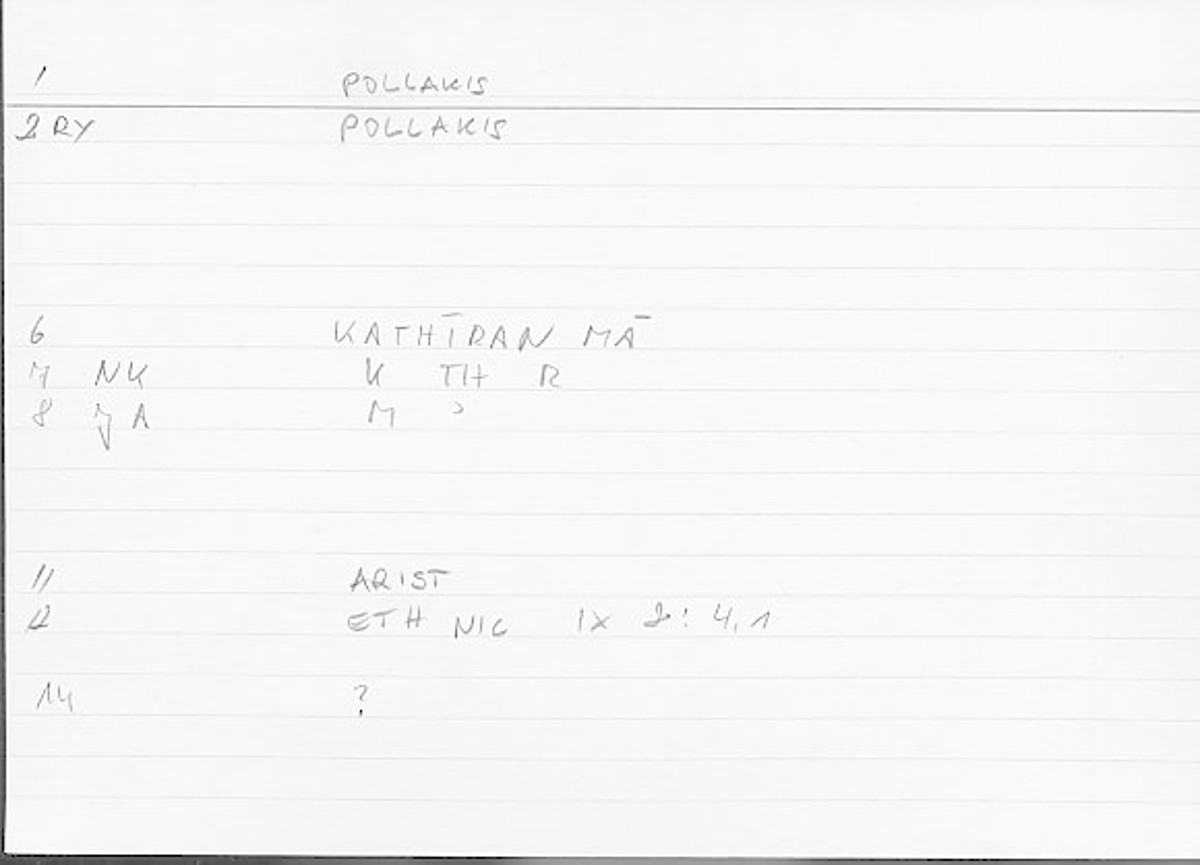 1 POLLAKIS
2 RY POLLAKIS
6 KATHĪRAN MĀ
7 NK K TH R
8 A M ʾ
11 ARIST
12 ETH NIC IX 2: 4,1
14 ?